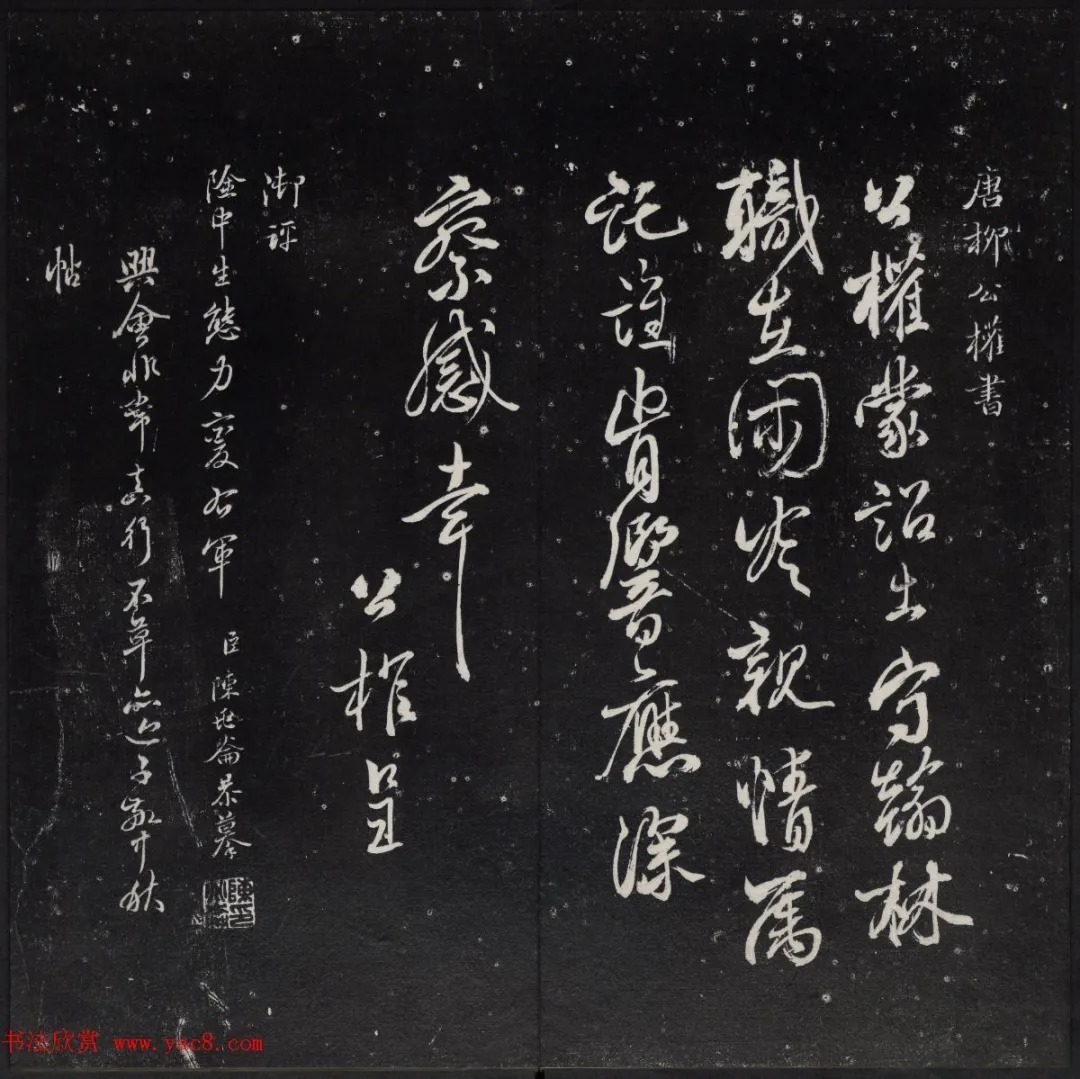 唐柳公權書
公權蒙詔出守翰林
職在閑冷親情属
託誰肯響應深
察感幸
公權呈
御評
險中生態力變右軍 臣陳兆崙恭摹
興會非常真行不草亦近子敬中秋
帖
书法欣赏 www.yac8.com